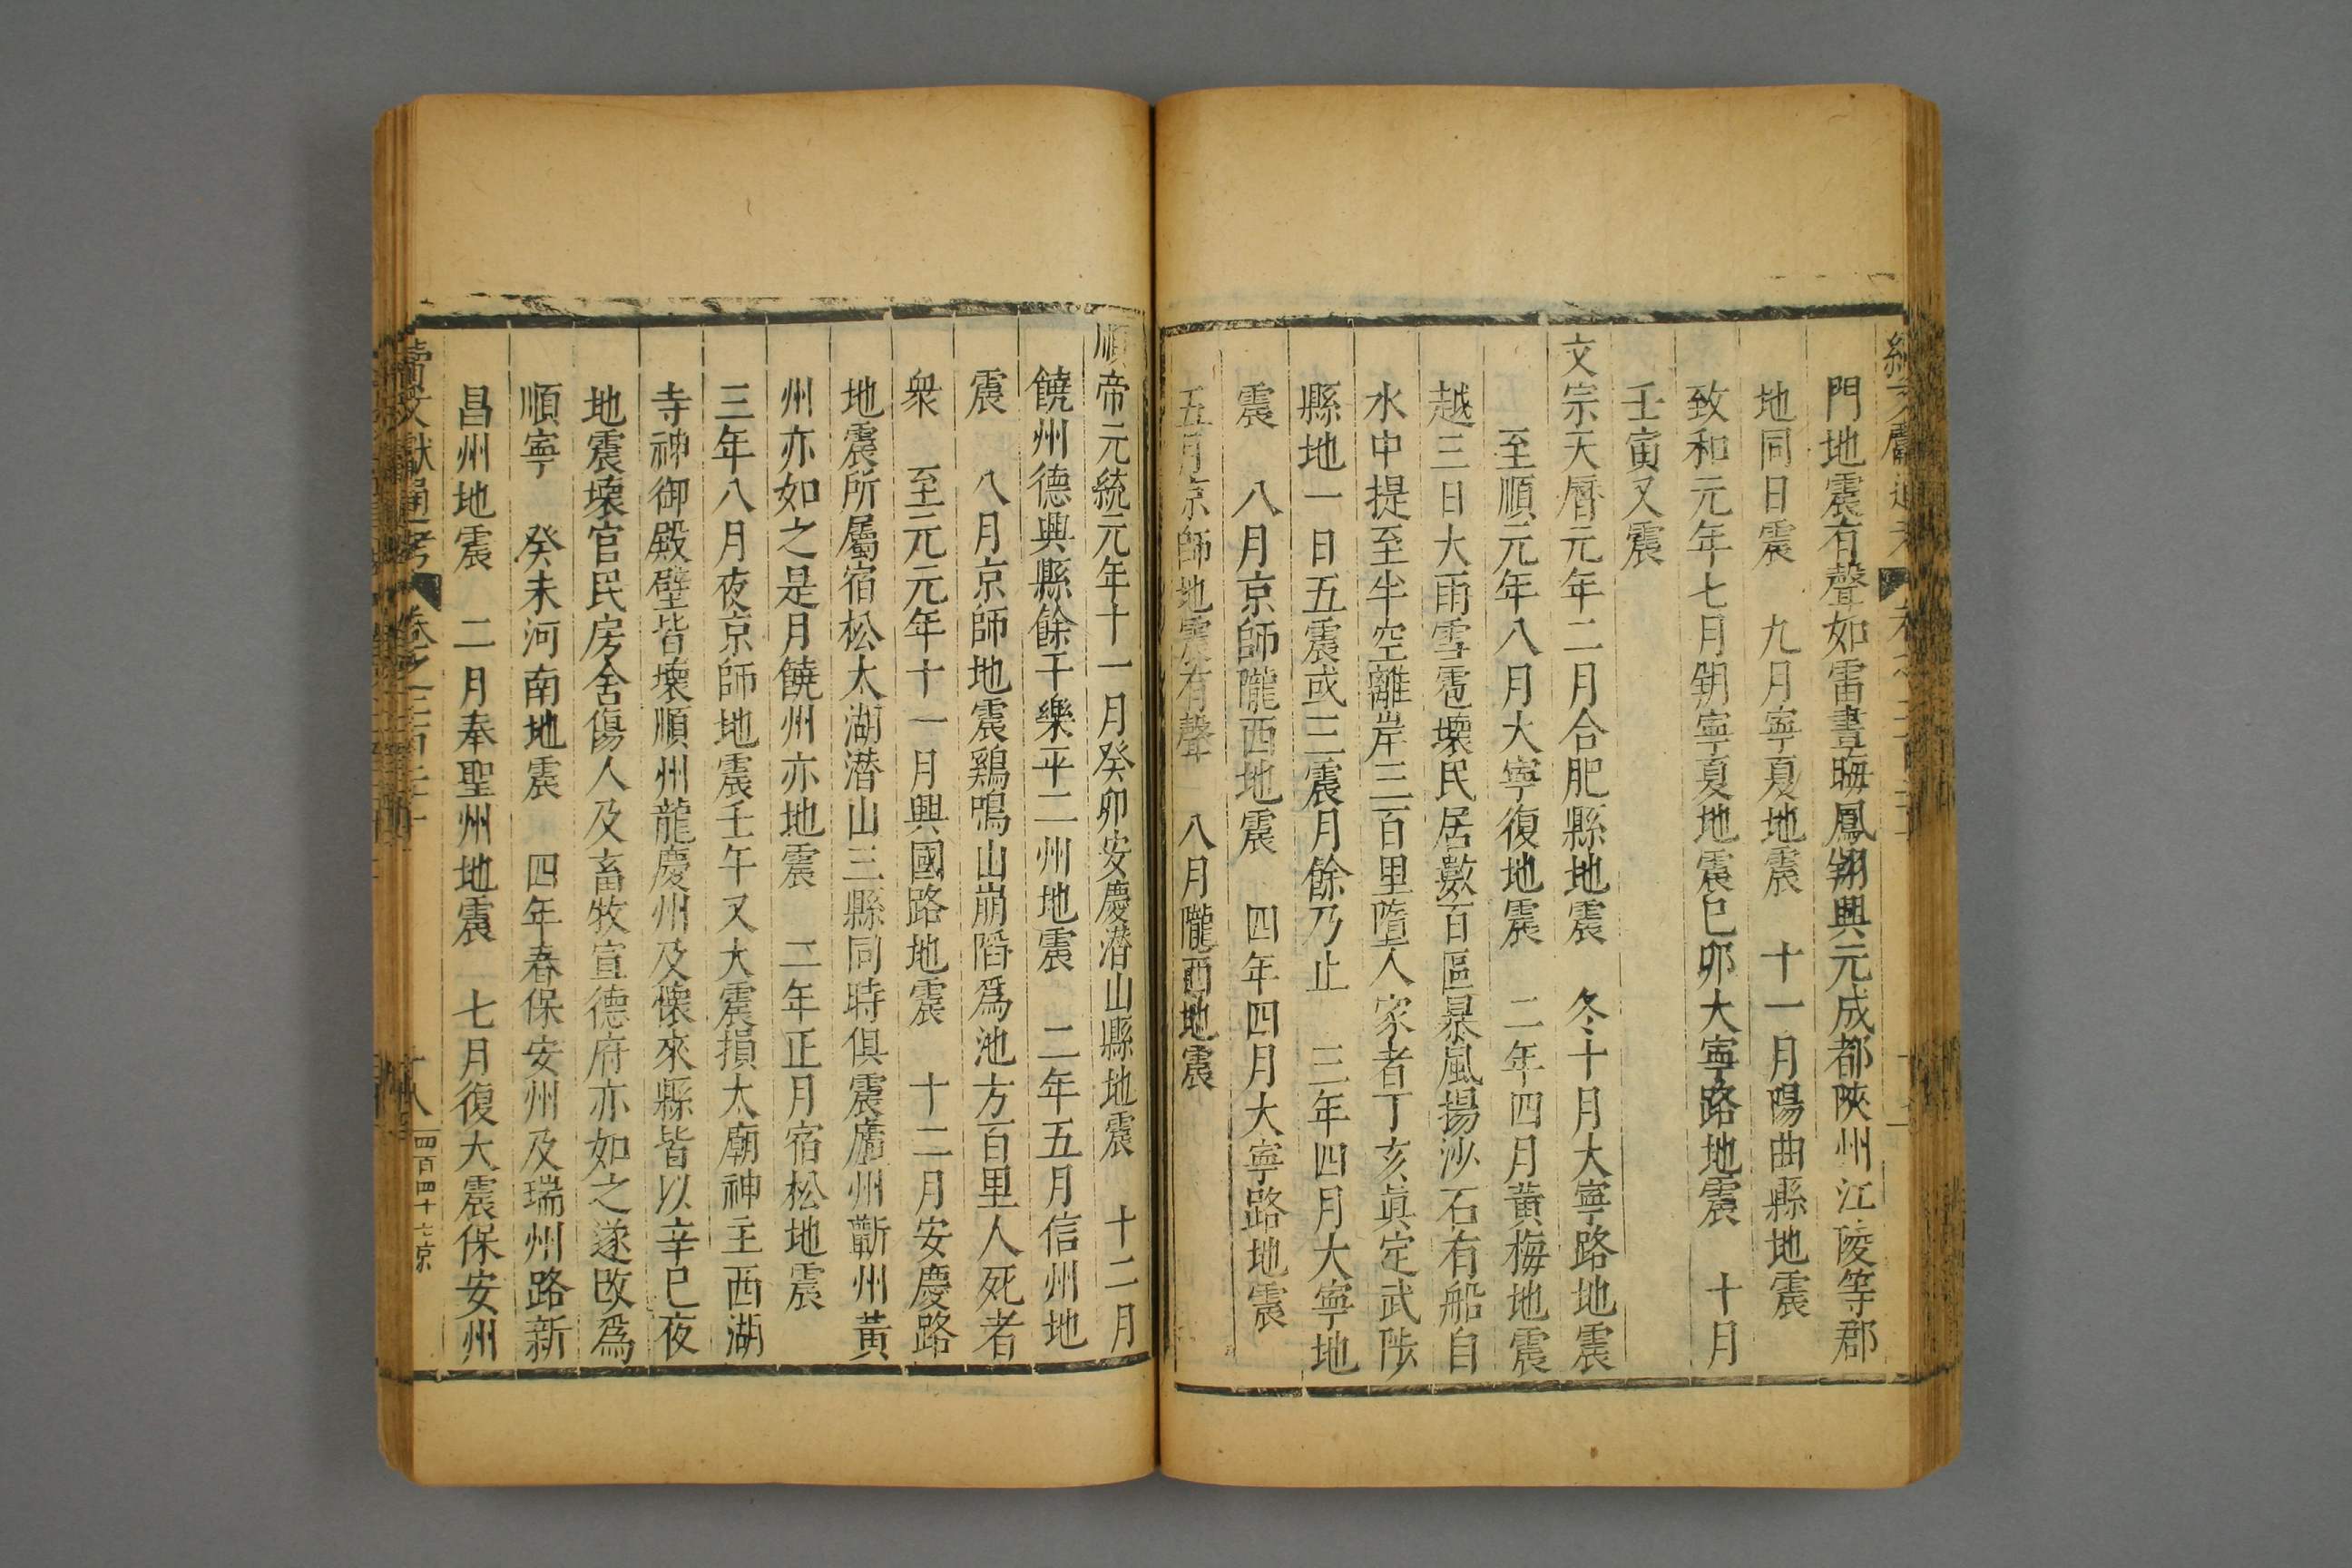 門地震有聲如雷晝晦鳳翔興元成都陝州江陵等郡
地同日震　九月寧夏地震　十一月陽曲縣地震
致和元年七月朔寧夏地震巳卯大寧路地震　十月
壬寅又震
文宗天曆元年二月合肥縣地震　冬十月大寧路地震
至順元年八月大寧復地震　二年四月黃梅地震
越三日大雨雪雹壞民居數百區暴風揚沙石有船自
水中提至半空離岸三百里墮人家者丁亥眞定武陟
縣地一日五震或三震月餘乃止　三年四月大寧地
震　八月京師隴西地震　四年四月大寧路地震
五月京師地震有聲　八月隴西地震
順帝元統元年十一月癸卯安慶潛山縣地震　十二月
饒州德興縣餘干樂平二州地震　二年五月信州地
震　八月京師地震鷄鳴山崩䧟爲池方百里人死者
衆　至元元年十一月興國路地震　十二月安慶路
地震所屬宿松太湖潛山三縣同時俱震廬州蘄州黃
州亦如之是月饒州亦地震　二年正月宿松地震
三年八月夜京師地震壬午又大震損太廟神主西湖
寺神御殿壁皆壞順州龍慶州及懷來縣皆以辛巳夜
地震壞官民房舍傷人及畜牧宣德府亦如之遂改爲
順寧　癸未河南地震　四年春保安州及瑞州路新
昌州地震　二月奉聖州地震　七月復大震保安州
續文獻通考　卷之二百二十　十八　四百四十七　京